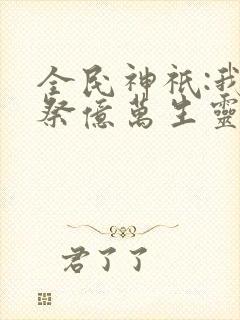 全民神祇:我
祭億萬生靈
君了了